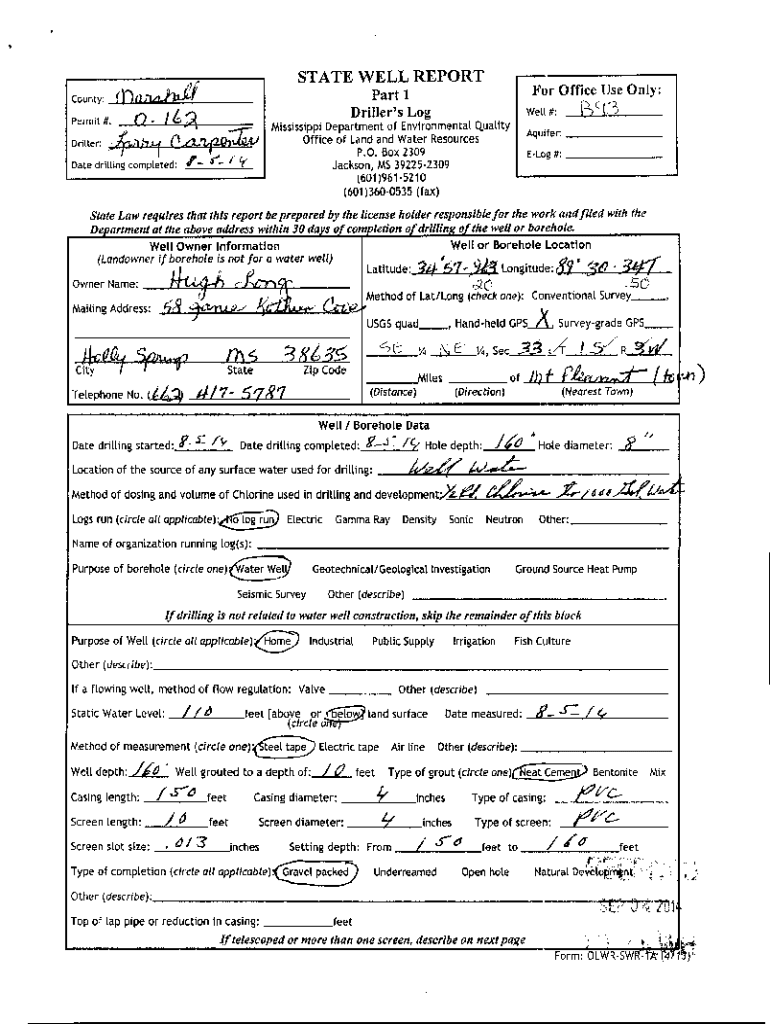 STATE WELL REPORT
Part 1
Driller's Log
Mississippi Department of Environmental Quality
Office of Land and Water Resources
P.O. Box 2309
Jackson, MS 39225-2309
(601)961-5210
(601)360-0535 (fax)
County: Marshall
Permit #. 0-162
Driller: Larry Carpenter
Date drilling completed: 8-5-14
For Office Use Only:
Well #: B93
Aquifer:
E-Log #:
State Law requires that this report be prepared by the license holder responsible for the work and filed with the
Department at the above address within 30 days of completion of drilling of the well or borehole.
Well Owner Information
(Landowner if borehole is not for a water well)
Owner Name: Hugh Long
Mailing Address: 58 Janie Kathern Cove
Holly Springs MS 38635
City State Zip Code
Telephone No. (662) 417-5787
Well or Borehole Location
Latitude: 34°57-963 Longitude: 89°30-347
20 50
Method of Lat/Long (check one): Conventional Survey ,
USGS quad , Hand-held GPS X, Survey-grade GPS
SE ¼ NE ¼, Sec 33 T 1S R 3W
Miles of Mt Pleasant (town)
(Distance) (Direction) (Nearest Town)
Well / Borehole Data
Date drilling started: 8-5-14 Date drilling completed: 8-5-14 Hole depth: 160' Hole diameter: 8"
Location of the source of any surface water used for drilling: Well Water
Method of dosing and volume of Chlorine used in drilling and development: Chlorine To 1000 Gal Water
Logs run (circle all applicable): No log run Electric Gamma Ray Density Sonic Neutron Other:
Name of organization running log(s):
Purpose of borehole (circle one): Water Well Geotechnical/Geological Investigation Ground Source Heat Pump
Seismic Survey Other (describe)
If drilling is not related to water well construction, skip the remainder of this block
Purpose of Well (circle all applicable): Home Industrial Public Supply Irrigation Fish Culture
Other (describe):
If a flowing well, method of flow regulation: Valve Other (describe)
Static Water Level: 110 feet [above or below] land surface Date measured: 8-5-14
(circle one)
Method of measurement (circle one): Steel tape Electric tape Air line Other (describe):
Well depth: 160' Well grouted to a depth of: 10 feet Type of grout (circle one): Neat Cement Bentonite Mix
Casing length: 150 feet Casing diameter: 4 inches Type of casing: PVC
Screen length: 10 feet Screen diameter: 4 inches Type of screen: PVC
Screen slot size: .013 inches Setting depth: From 150 feet to 160 feet
Type of completion (circle all applicable): Gravel packed Underreamed Open hole Natural Development
Other (describe):
SEP 04 2014
Top of lap pipe or reduction in casing: feet
If telescoped or more than one screen, describe on next page
Form: OLWR-SWR-1A (4/13)